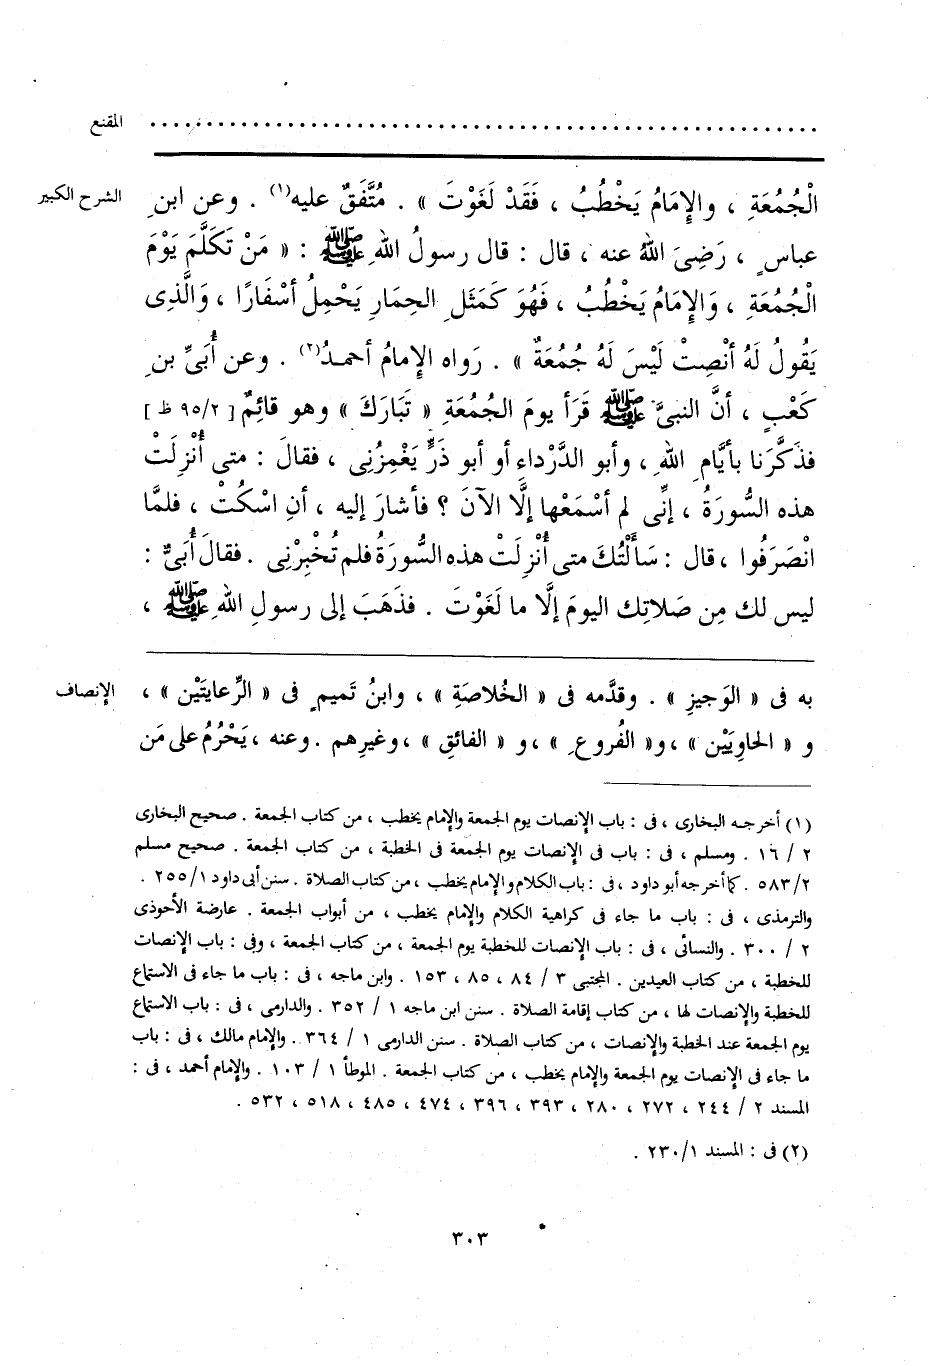 المقنع ........................................................
الشرح الكبير
الْجُمُعَةِ ، والإِمَامُ يَخْطُبُ ، فَقَدْ لَغَوْتَ » . مُتَّفَقٌ عليه(١) . وعن ابنِ
عباسٍ ، رَضِىَ اللهُ عنه ، قال : قال رسولُ اللهِ ﷺ : « مَنْ تَكَلَّمَ يَوْمَ
الْجُمُعَةِ ، وَالإِمَامُ يَخْطُبُ ، فَهُوَ كَمَثَلِ الحِمَارِ يَحْمِلُ أسْفَارًا ، وَالَّذِى
يَقُولُ لَهُ أنْصِتْ لَيْسَ لَهُ جُمُعَةٌ » . رَواه الإِمامُ أحمدُ(٢) . وعن أُبَىِّ بنِ
كَعْبٍ ، أنَّ النبىَّ ﷺ قَرَأ يومَ الجُمُعَةِ « تَبَارَكَ » وهو قائِمٌ [ ٩٥/٢ ظ ]
فذَكَّرَنا بأيَّامِ اللهِ ، وأبو الدَّرْداءِ أو أبو ذَرٍّ يَغْمِزُنِى ، فقالَ : متى أُنْزِلَتْ
هذه السُّورَةُ ، إنِّى لم أسْمَعْها إلَّا الآنَ ؟ فأشارَ إليه ، أنِ اسْكُتْ ، فلمَّا
انْصَرَفُوا ، قال : سَألْتُكَ متى أُنْزِلَتْ هذه السُّورَةُ فلم تُخْبِرْنِى . فقالَ أُبَىٌّ :
ليس لك مِن صَلاتِك اليومَ إلَّا ما لَغَوْتَ . فذَهَبَ إلى رسولِ اللهِ ﷺ ،
الإنصاف
به فى « الوَجيزِ » . وقدَّمه فى « الخُلاصَةِ » ، وابنُ تَميمٍ فى « الرِّعايتَيْن » ،
و « الحاوِيَيْن » ، و« الفُروعِ » ، و « الفائقِ » ، وغيرِهم . وعنه ، يَحْرُمُ على مَن
(١) أخرجه البخارى ، فى : باب الإنصات يوم الجمعة والإمام يخطب ، من كتاب الجمعة . صحيح البخارى
٢ / ١٦ . ومسلم ، فى : باب فى الإنصات يوم الجمعة فى الخطبة ، من كتاب الجمعة . صحيح مسلم
٥٨٣/٢ . كما أخرجه أبو داود ، فى : باب الكلام والإمام يخطب ، من كتاب الصلاة . سنن أبى داود ٢٥٥/١ .
والترمذى ، فى : باب ما جاء فى كراهية الكلام والإمام يخطب ، من أبواب الجمعة . عارضة الأحوذى
٢ / ٣٠٠ . والنسائى ، فى : باب الإنصات للخطبة يوم الجمعة ، من كتاب الجمعة ، وفى : باب الإنصات
للخطبة ، من كتاب العيدين . المجتبى ٣ / ٨٤ ، ٨٥ ، ١٥٣ . وابن ماجه ، فى : باب ما جاء فى الاستماع
للخطبة والإنصات لها ، من كتاب إقامة الصلاة . سنن ابن ماجه ١ / ٣٥٢ . والدارمى ، فى : باب الاستماع
يوم الجمعة عند الخطبة والإنصات ، من كتاب الصلاة . سنن الدارمى ١ / ٣٦٤ . والإمام مالك ، فى : باب
ما جاء فى الإنصات يوم الجمعة والإمام يخطب ، من كتاب الجمعة . الموطأ ١ / ١٠٣ . والإمام أحمد ، فى :
المسند ٢ / ٢٤٤ ، ٢٧٢ ، ٢٨٠ ، ٣٩٣ ، ٣٩٦ ، ٤٧٤ ، ٤٨٥ ، ٥١٨ ، ٥٣٢ .
(٢) فى : المسند ٢٣٠/١ .
٣٠٣